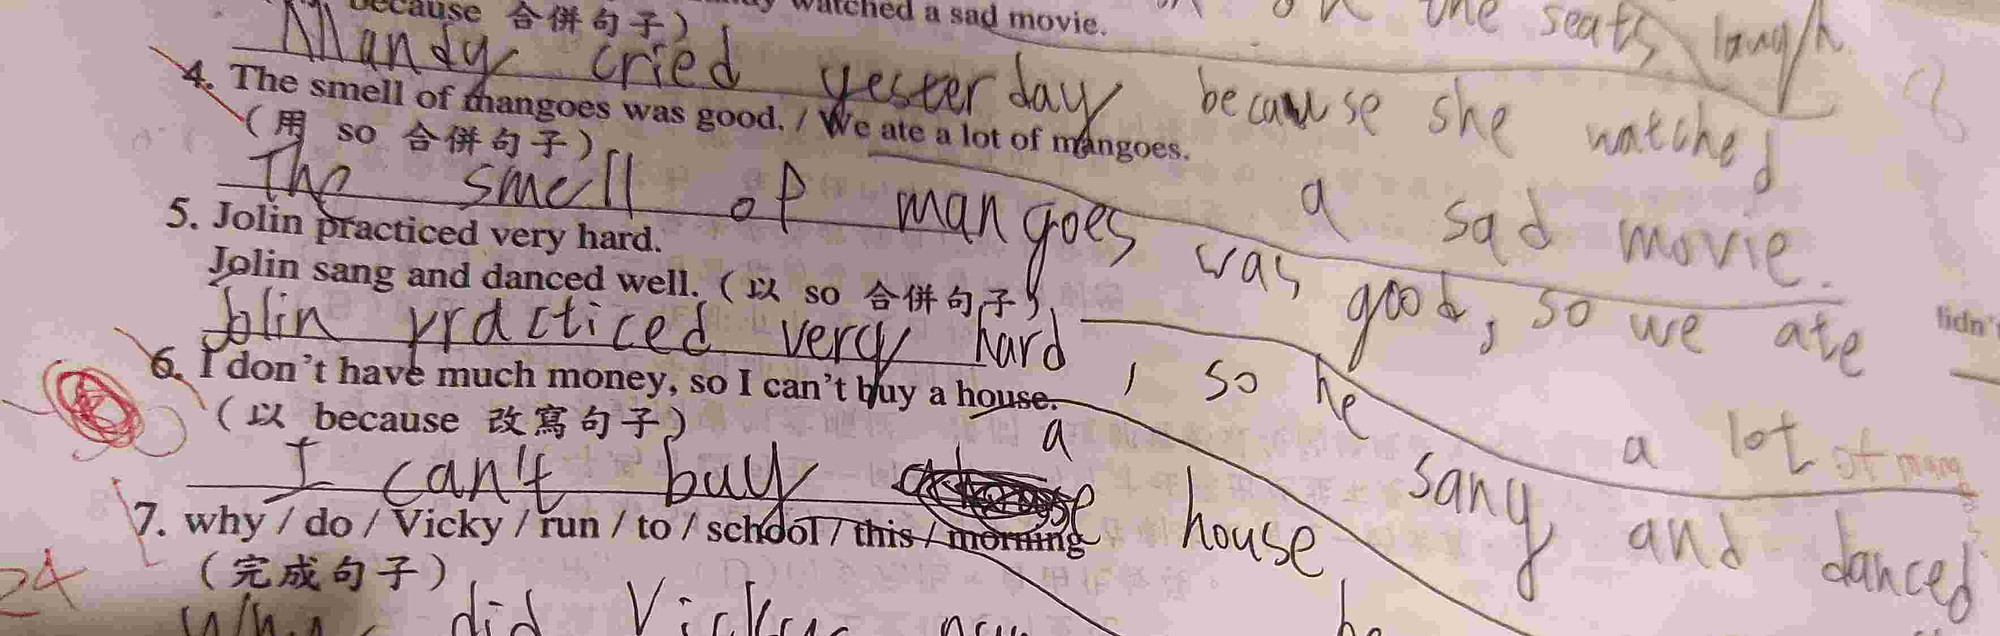 because 合併句子） watched a sad movie.
on the seats laugh
Mandy cried yesterday because she watched
a sad movie.
4. The smell of mangoes was good. / We ate a lot of mangoes.
（用 so 合併句子）
The smell of mangoes was good, so we ate
a lot of mang
5. Jolin practiced very hard.
Jolin sang and danced well.（以 so 合併句子）
Jolin practiced very hard, so he
sang and danced
6. I don't have much money, so I can't buy a house.
（以 because 改寫句子）
I can't buy a house
7. why / do / Vicky / run / to / school / this / morning
（完成句子）
Why did Vicky run
24